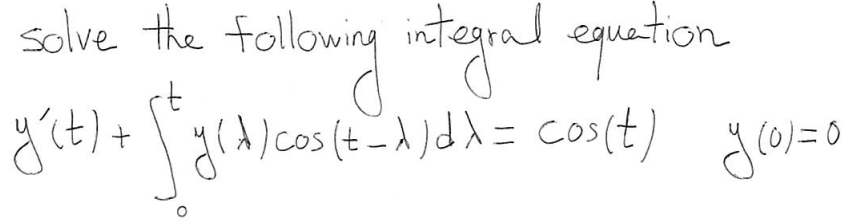 solve the following integral equation
y′(t) + ∫₀ᵗ y(λ) cos(t-λ) dλ = cos(t)   y(0)=0